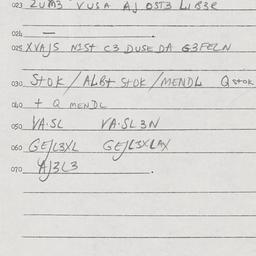 023 ZUM3 VUSA AJ OST3 LIB3R
024 —
025 XVAJS NIST C3 DUSE DA G3FELN
030 STOK / ALBT STOK / MENDL Q STOK
040 + Q MENDL
050 VA·SL VA·SL3N
060 GEJL3XL GEJL3XLAX
070 AJ3L3 .